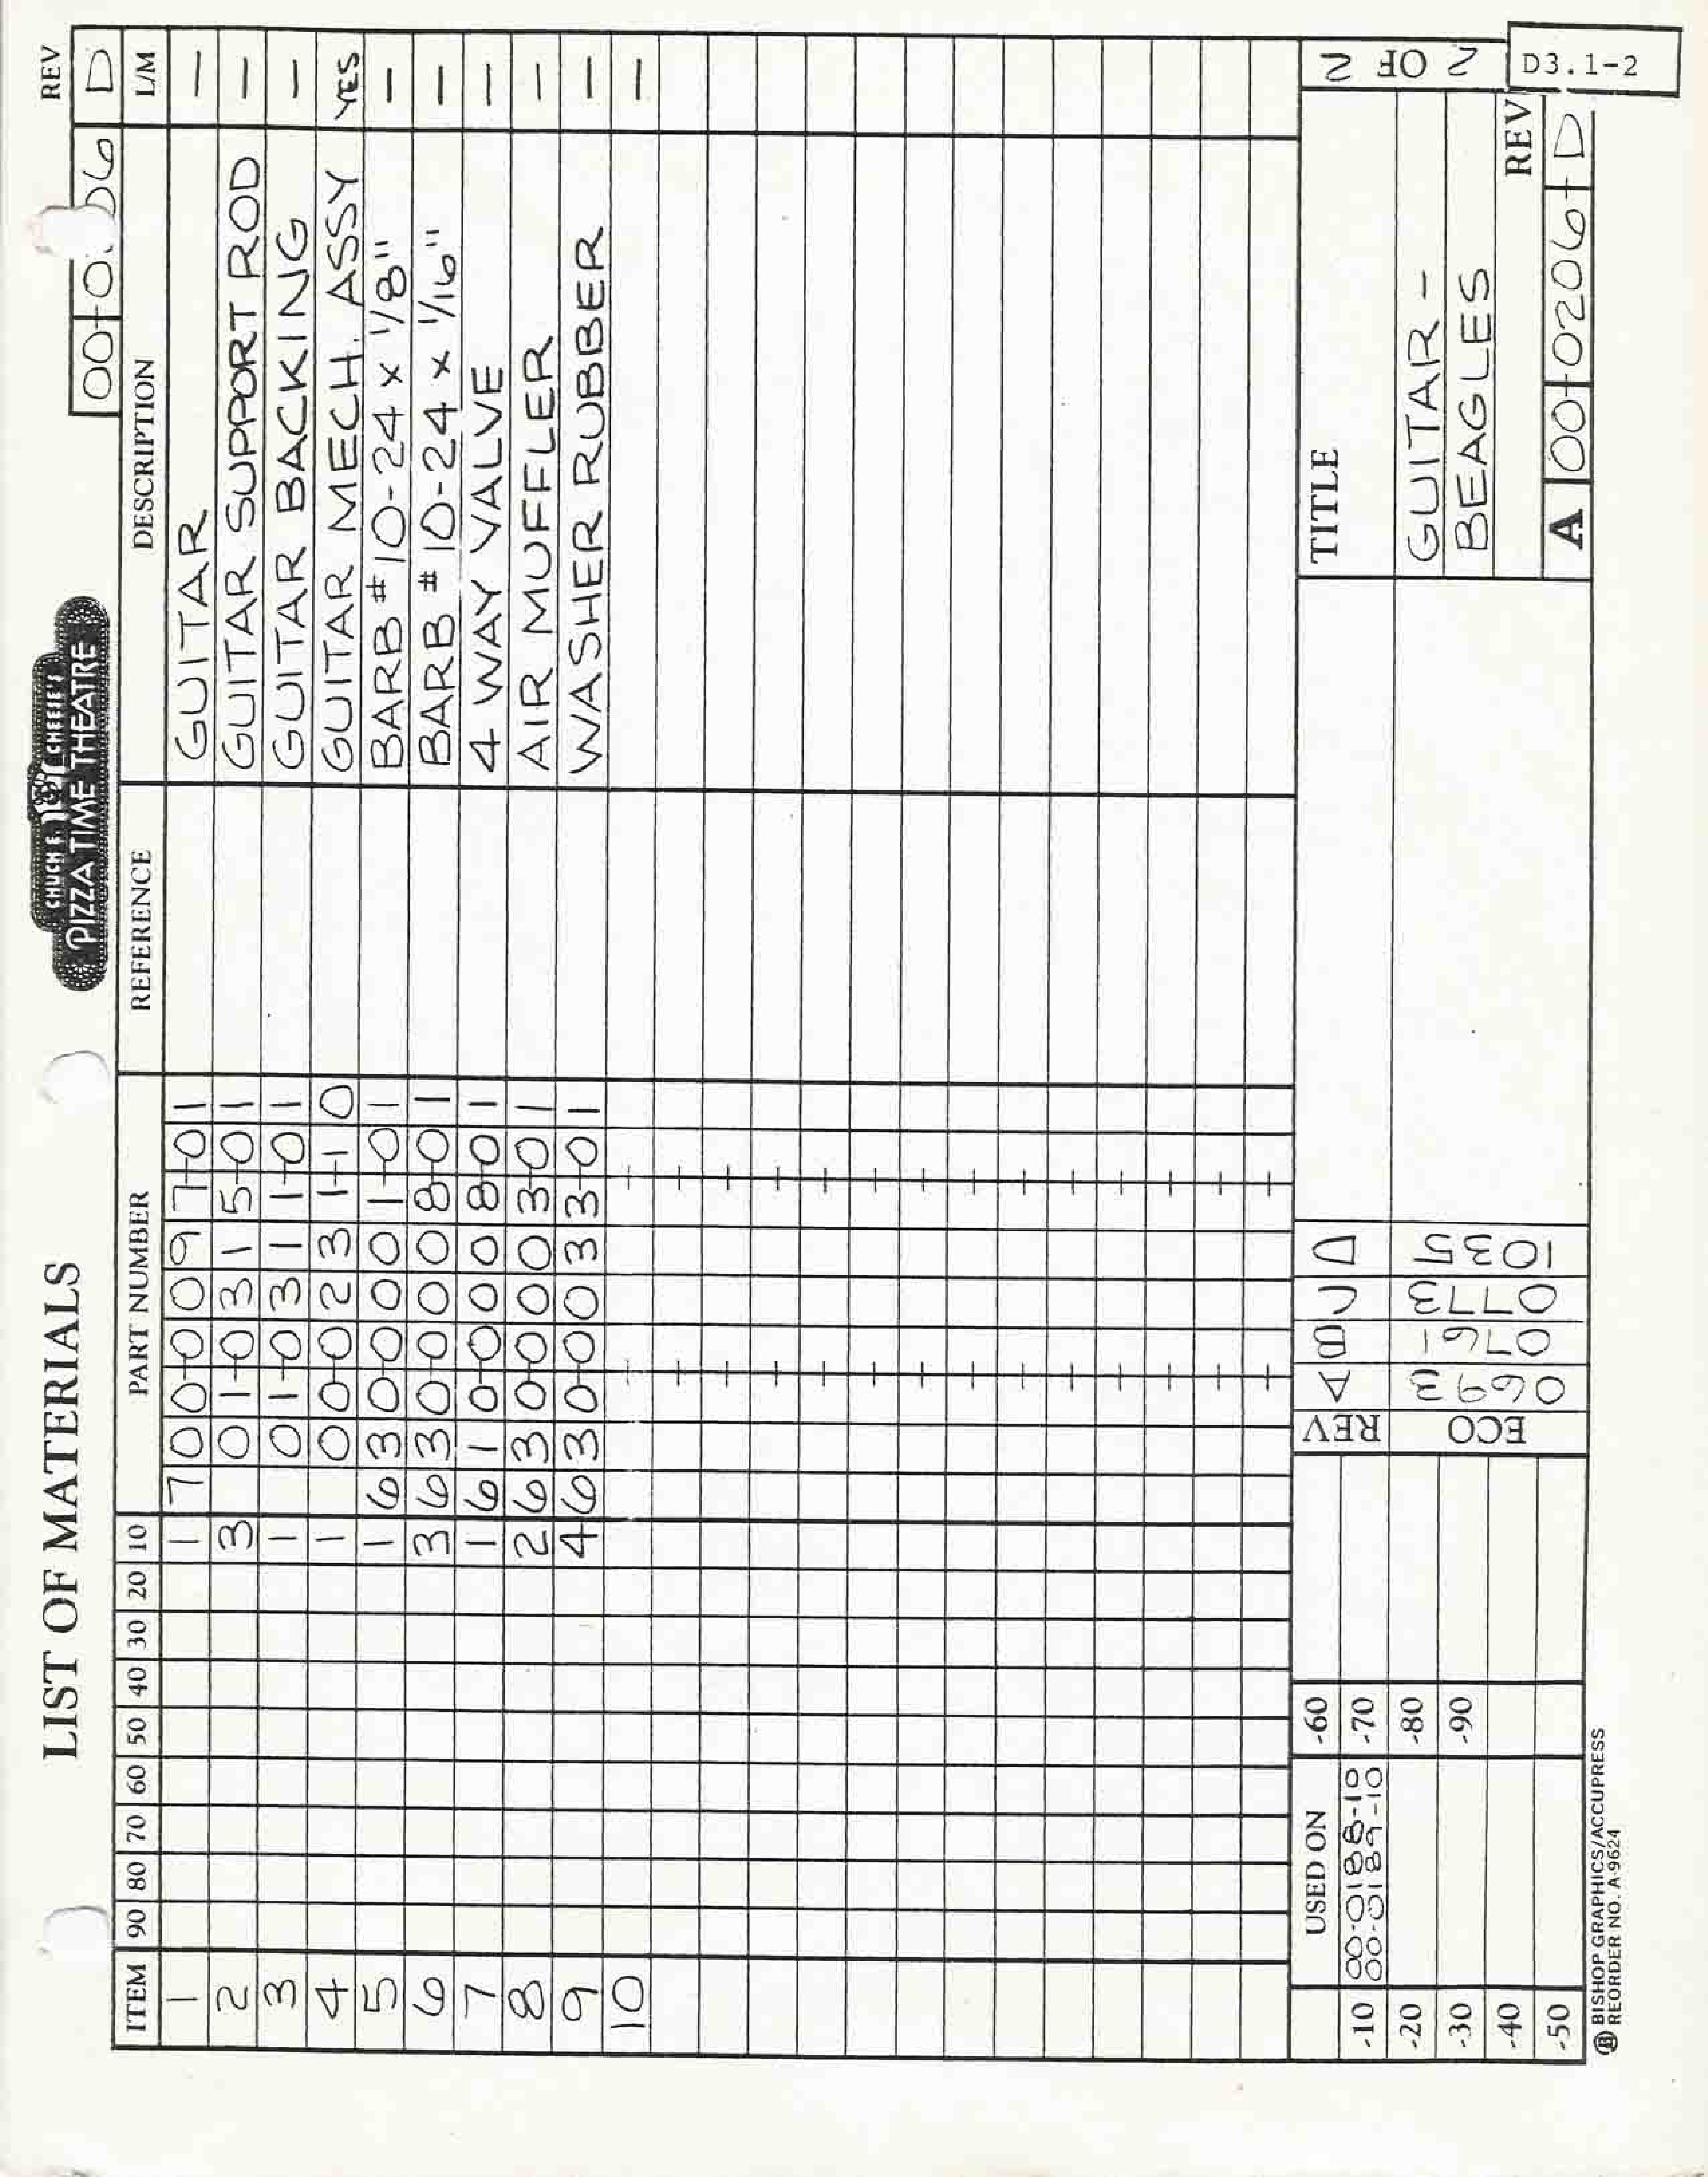 LIST OF MATERIALS
CHUCK E. CHEESE'S
PIZZA TIME THEATRE
REV
00-0 06 D
ITEM 90 80 70 60 50 40 30 20 10 PART NUMBER REFERENCE DESCRIPTION L/M
1 1 700-0097-01 GUITAR —
2 3 01-0315-01 GUITAR SUPPORT ROD —
3 1 01-0311-01 GUITAR BACKING —
4 1 00-0231-10 GUITAR MECH. ASSY YES
5 1 630-0001-01 BARB #10-24 x 1/8" —
6 3 630-0008-01 BARB #10-24 x 1/16" —
7 1 610-0008-01 4 WAY VALVE —
8 2 630-0003-01 AIR MUFFLER —
9 4 630-0033-01 WASHER RUBBER —
10 —
USED ON
-10 00-0188-10
00-0189-10
-20
-30
-40
-50
-60
-70
-80
-90
REV ECO
A 0693
B 0761
C 0773
D 1035
TITLE
GUITAR -
BEAGLES
REV
A 00-0206- D
2 OF 2
D3.1-2
BISHOP GRAPHICS/ACCUPRESS
REORDER NO. A-9624